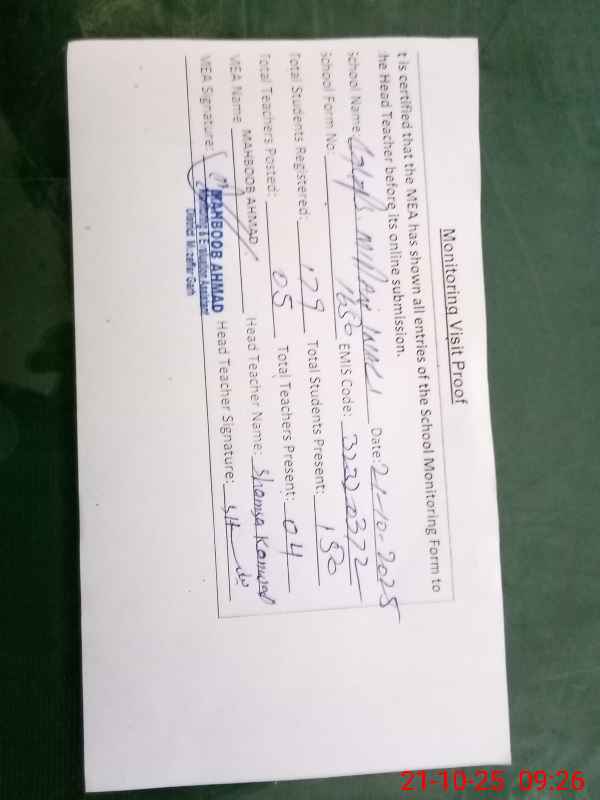 Monitoring Visit Proof
t is certified that the MEA has shown all entries of the School Monitoring Form to
he Head Teacher before its online submission.
School Name: Date: 21-10-2025
School Form No. 1650 EMIS Code: 32320372
Total Students Registered: 179 Total Students Present: 150
Total Teachers Posted: 05 Total Teachers Present: 04
MEA Name MAHBOOB AHMAD Head Teacher Name: Shamsa Kanwal
MEA Signature: Head Teacher Signature:
MAHBOOB AHMAD
Monitoring & Evaluation Assistant
District Muzaffar Garh
21-10-25 09:26